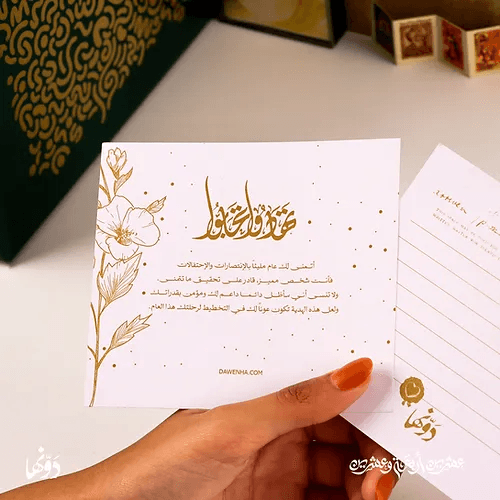 تهادوا تحابوا
أتمنى لك عام مليئاً بالإنتصارات والإحتفالات
فأنت شخص مميز، قادر على تحقيق ما تتمنى.
ولا تنسى أني سأظل دائما داعم لك ومؤمن بقدراتك
ولعل هذه الهدية تكون عونا لك في التخطيط لرحلتك هذا العام.
DAWENHA.COM
دَوِّنها
دَوِّنها
عشرين أربعة وعشرين